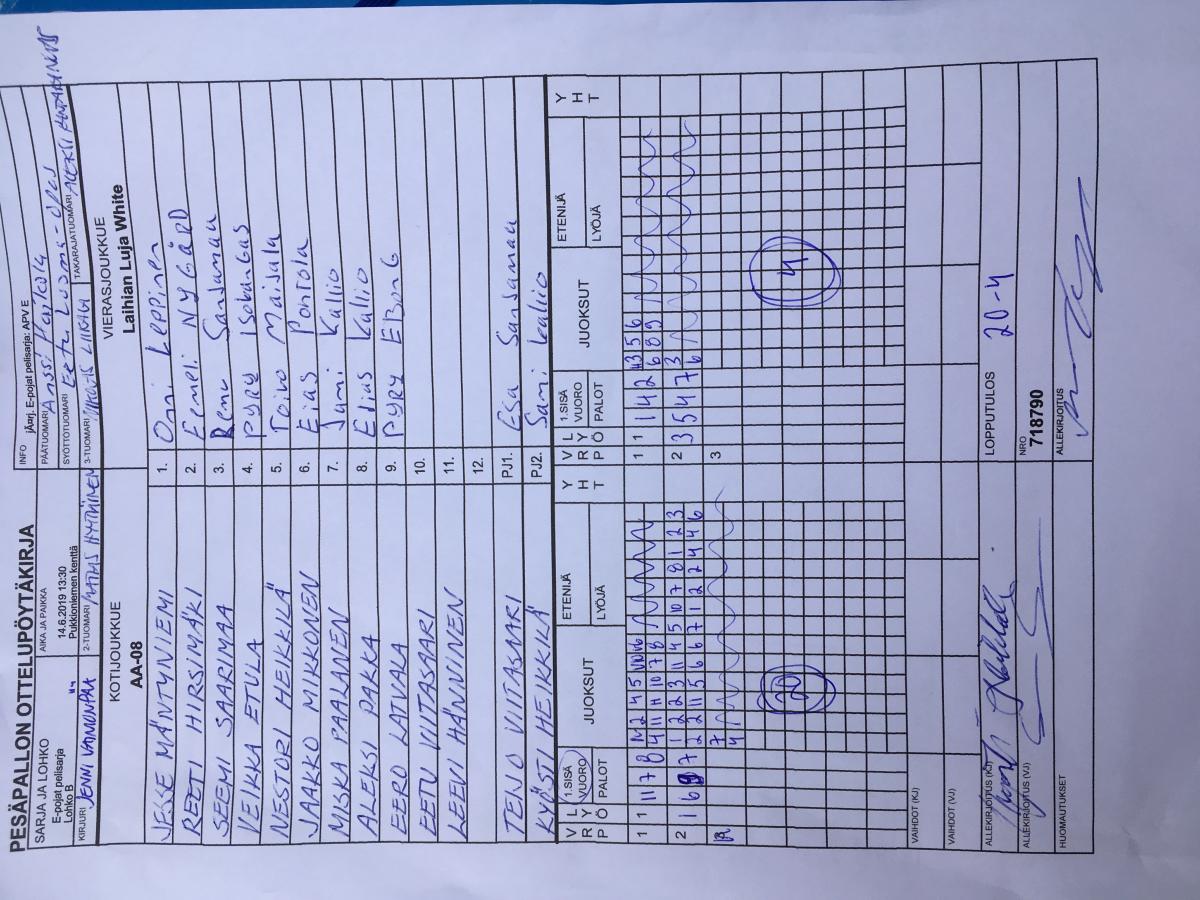 PESÄPALLON OTTELUPÖYTÄKIRJA
SARJA JA LOHKO
E-pojat pelisarja
Lohko B
AIKA JA PAIKKA
14.6.2019 13:30
Pukkioniemen kenttä
INFO
jÄarj. E-pojat pelisarja: APV E
PÄÄTUOMARI Anssi
SYÖTTÖTUOMARI Eetu Luoma-
KIRJURI JENNI VAINIONPÄÄ
2-TUOMARI
3-TUOMARI
TAKARAJATUOMARI
KOTIJOUKKUE
AA-08
VIERASJOUKKUE
Laihian Luja White
JESSE MÄNTYNIEMI 1. Onni Leppinen
REETI HIRSIMÄKI 2. Eemeli NYGÅRD
SEEMI SAARIMAA 3. Remu
VEIKKA ETULA 4. PYRY Isokangas
NESTORI HEIKKILÄ 5. Toivo Maisala
JAAKKO MIKKONEN 6. Elias Pontola
MISKA PAALANEN 7. Jami Kallio
ALEKSI PAKKA 8. Elias Kallio
EERO LATVAKA 9. PYRY
EETU VIITASAARI 10.
LEEVI HÄNNINEN 11.
12.
TENJO VIITASAARI PJ1. Esa
KYÖSTI HEIKKILÄ PJ2. Sami Kallio
V L
R Y
P Ö
1.SISÄ
VUORO
PALOT
JUOKSUT
ETENIJÄ
LYÖJÄ
Y
H
T
V L
R Y
P Ö
1.SISÄ
VUORO
PALOT
JUOKSUT
ETENIJÄ
LYÖJÄ
Y
H
T
1 1 11 7 8
4 11 11 10 7 8
1 1 1 4 2
6 8 9
2 1 6 9 7
1 2 2 3 11 4 5 10 7 8 1 2 3
2 2 11 5 6 6 7 1 2 2 4 4 6
2 3 5 4 7
3
6
3
7
4
3
20
4
VAIHDOT (KJ)
VAIHDOT (VJ)
ALLEKIRJOITUS (KJ)
LOPPUTULOS 20-4
ALLEKIRJOITUS (VJ)
NRO
718790
HUOMAUTUKSET
ALLEKIRJOITUS